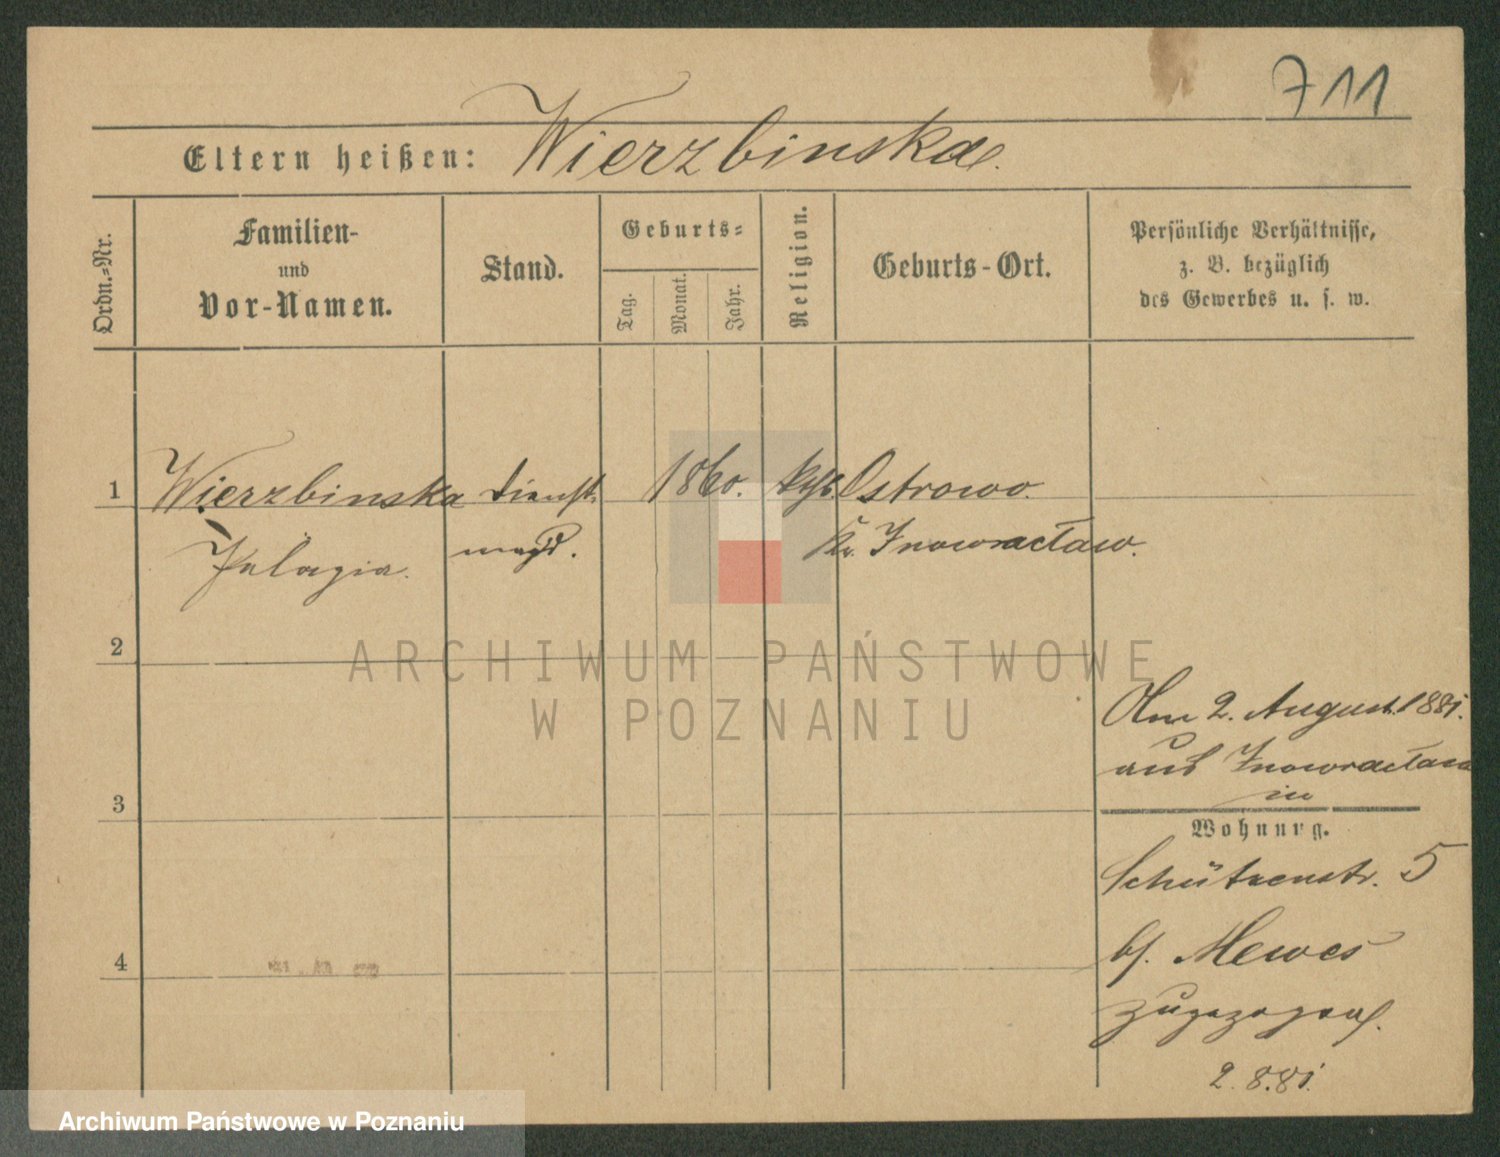 711
Eltern heißen: Wierzbinska.
Ordn.-Nr.
Familien-
und
Vor-Namen.
Stand.
Geburts-
Tag.
Monat.
Jahr.
Religion.
Geburts-Ort.
Persönliche Verhältnisse,
z. B. bezüglich
des Gewerbes u. s. w.
1 Wierzbinska Dienst- 1860. Ostrowo
Pelagia. magd. Kr. Inowracław.
2
ARCHIWUM PAŃSTWOWE
W POZNANIU
Am 2. August 1881.
aus Inowracław
in
3
Wohnung.
Schützenstr. 5
bei Mewes
4
zugezogen.
2.8.81.
Archiwum Państwowe w Poznaniu